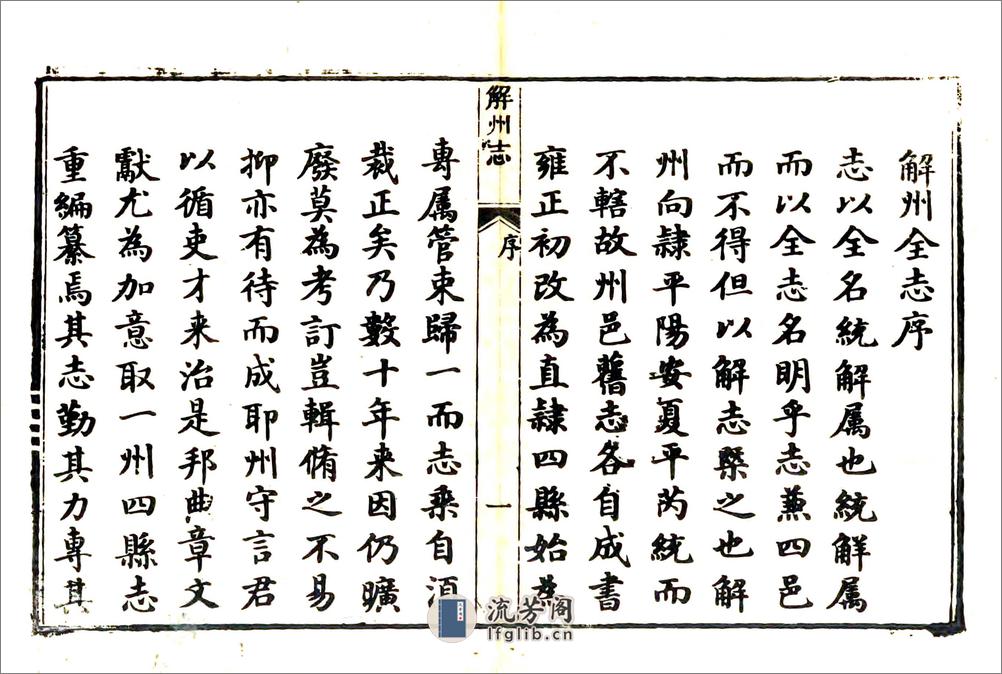 解州全志序
志以全名統解属也統解属
而以全志名明乎志兼四邑
而不得但以解志槩之也解
州向隷平陽安夏平芮統而
不轄故州邑舊志各自成書
雍正初改為直隷四縣始為
解州志
序
一
專属管束歸一而志乘自須
裁正矣乃數十年来因仍曠
廢莫為考訂豈輯脩之不易
抑亦有待而成耶州守言君
以循吏才来治是邦典章文
獻尤為加意取一州四縣志
重編纂焉其志勤其力專其
流芳阁
lfglib.cn